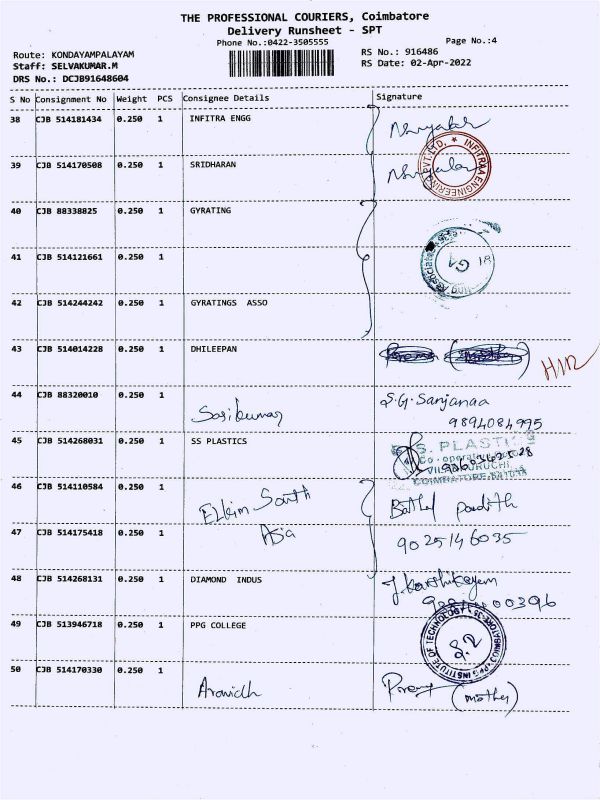 THE PROFESSIONAL COURIERS, Coimbatore
Delivery Runsheet - SPT
Phone No.:0422-3505555
Page No.:4
Route: KONDAYAMPALAYAM
Staff: SELVAKUMAR.M
DRS No.: DCJB91648604
RS No.: 916486
RS Date: 02-Apr-2022
S No Consignment No Weight PCS Consignee Details Signature
38 CJB 514181434 0.250 1 INFITRA ENGG
39 CJB 514170508 0.250 1 SRIDHARAN
INFITRA ENGINEERING PVT. LTD.
40 CJB 88338825 0.250 1 GYRATING
41 CJB 514121661 0.250 1
42 CJB 514244242 0.250 1 GYRATINGS ASSO
43 CJB 514014228 0.250 1 DHILEEPAN
44 CJB 88320010 0.250 1 Sasikumar S.G. Sanjanaa
9894084995
45 CJB 514268031 0.250 1 SS PLASTICS
S. PLASTIC
Co-operative
COIMBATORE
46 CJB 514110584 0.250 1 Elkim South
47 CJB 514175418 0.250 1 Asia 9025146035
48 CJB 514268131 0.250 1 DIAMOND INDUS J. Karthikeyan
49 CJB 513946718 0.250 1 PPG COLLEGE
PPG INSTITUTE OF TECHNOLOGY COIMBATORE-35
50 CJB 514170330 0.250 1 Aravidh Prema (mother)